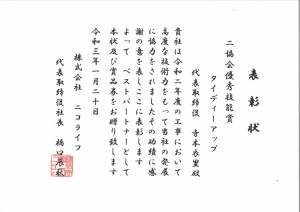 表彰状
二協会優秀技能賞
タイディーアップ
代表取締役 寺本 恭里殿
貴社は令和二年度の工事において
高度な技術力をもって当社の発展
に協力をされましたその功績に感
謝の意を表しここに表彰します
よってベストパートナーとして
本状及び賞品券をお贈り致します
令和三年一月二十日
株式会社 ニコライフ
代表取締役社長 橋口